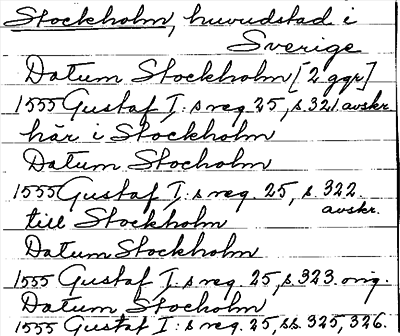 Stockholm, huvudstad i
Sverige
Datum Stockholm [2 ggr]
1555 Gustaf I: s reg. 25, s. 321 avskr.
här i Stockholm
Datum Stocholm
1555 Gustaf I: s reg. 25, s. 322.
avskr.
till Stockholm
Datum Stockholm
1555 Gustaf I. s reg. 25, s. 323. orig.
Datum Stocholm
1555 Gustaf I: s reg. 25, ss. 325, 326.